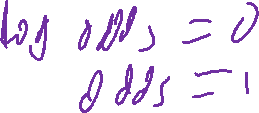 log odds = 0
odds = 1